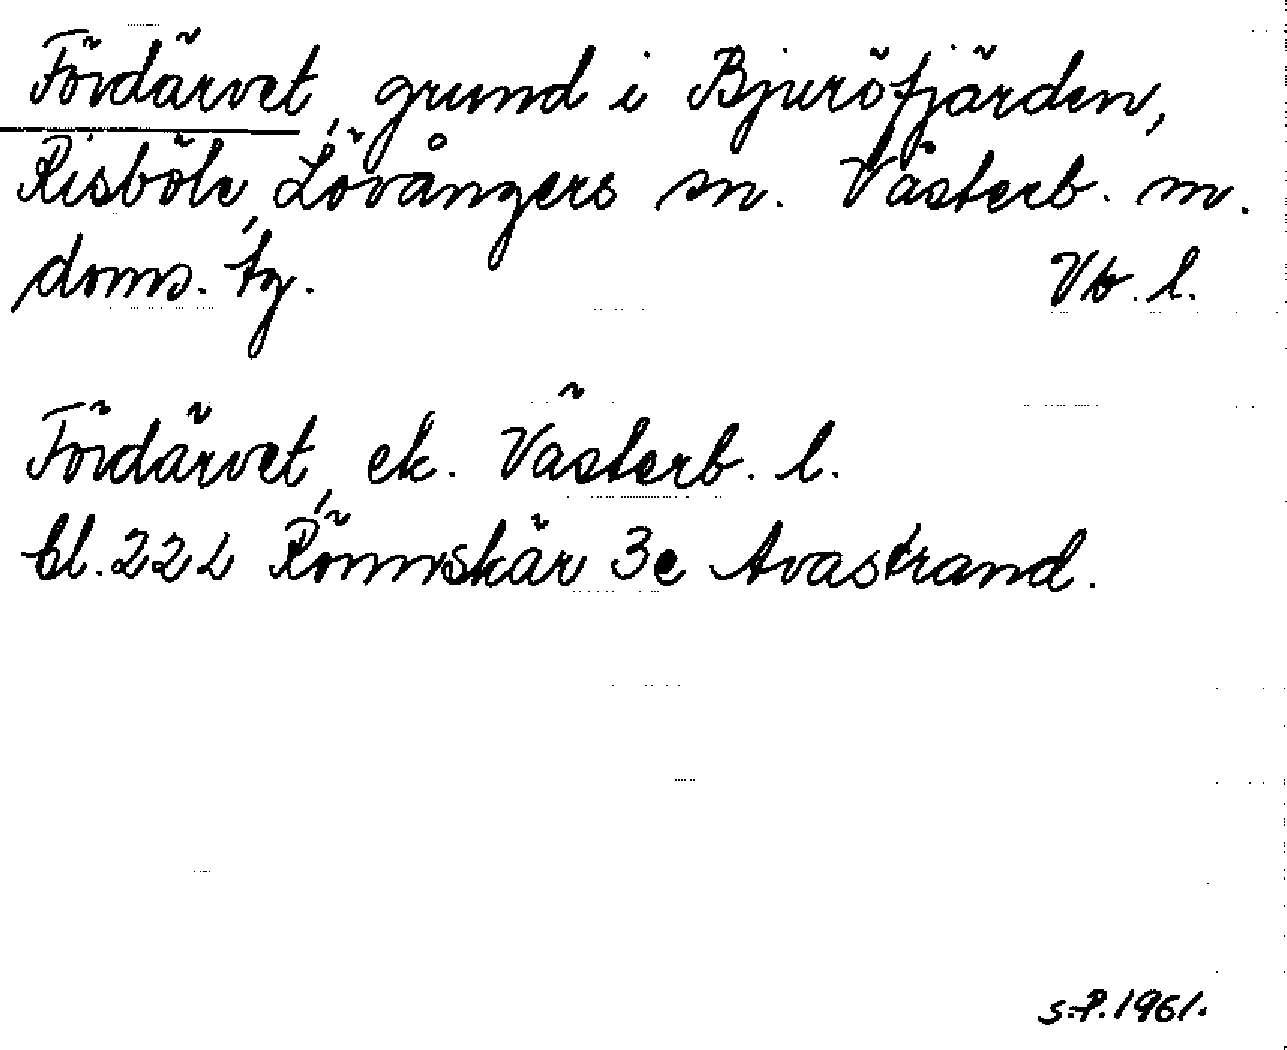 Fördärvet, grund i Bjuröfjärden,
Risböle, Lövångers sn. Västerb. m.
doms. tg. Vb. l.
Fördärvet, ek. Västerb. l.
bl. 22 L Rönnskär 3e Avastrand.
S.P. 1961.